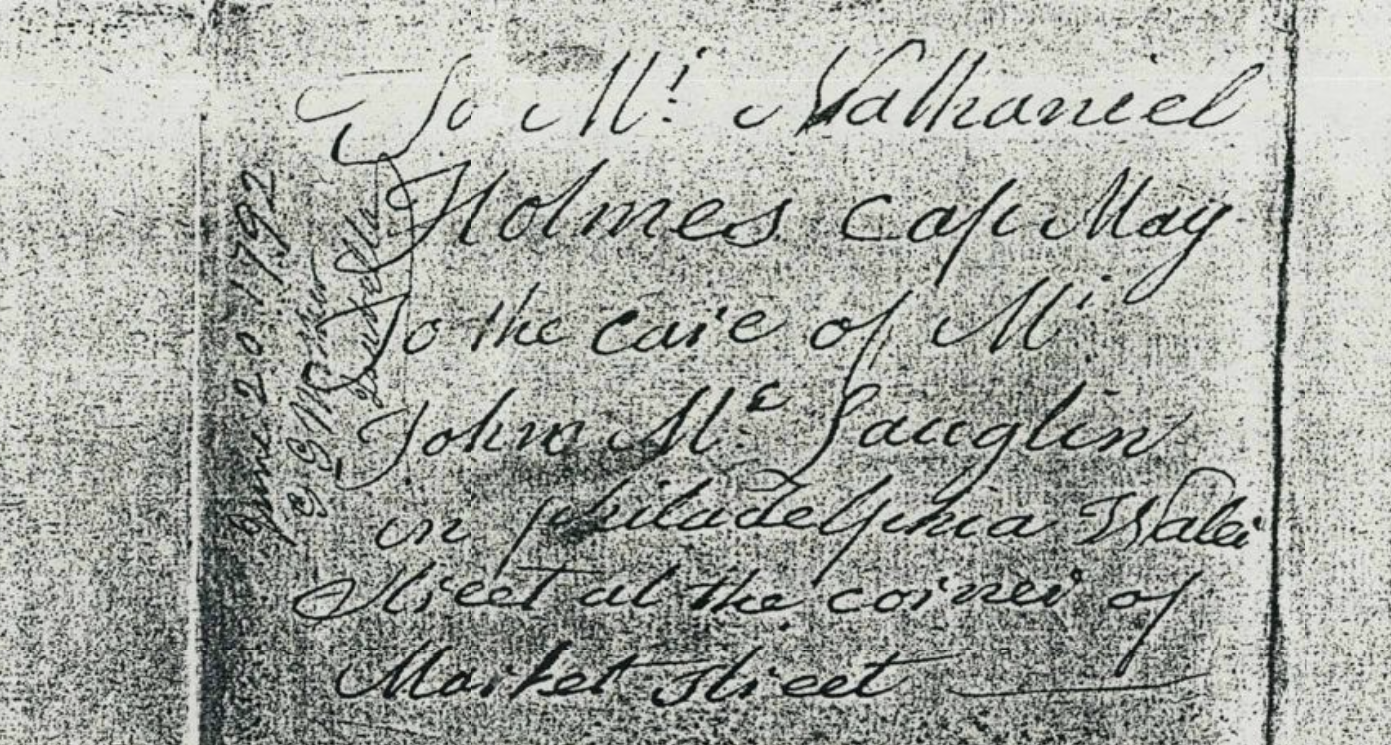 To Mr. Nathaniel
Holmes Cape May
To the care of Mr
John Mc Lauglin
in philadelphia Water
Street at the corner of
Market Street
June 20 1792